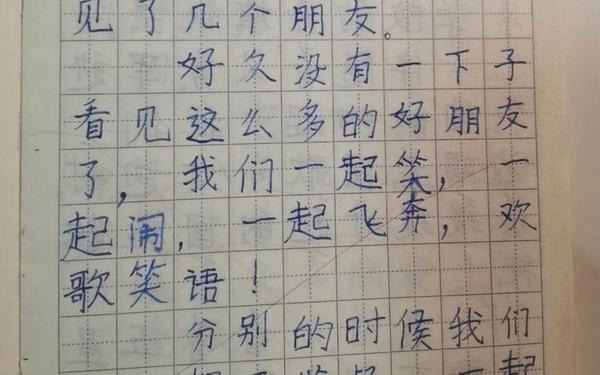 见了几个朋友。
好久没有一下子
看见这么多的好朋友
了，我们一起笑，一
起闹，一起飞奔，欢
歌笑语！
分别的时候我们
起